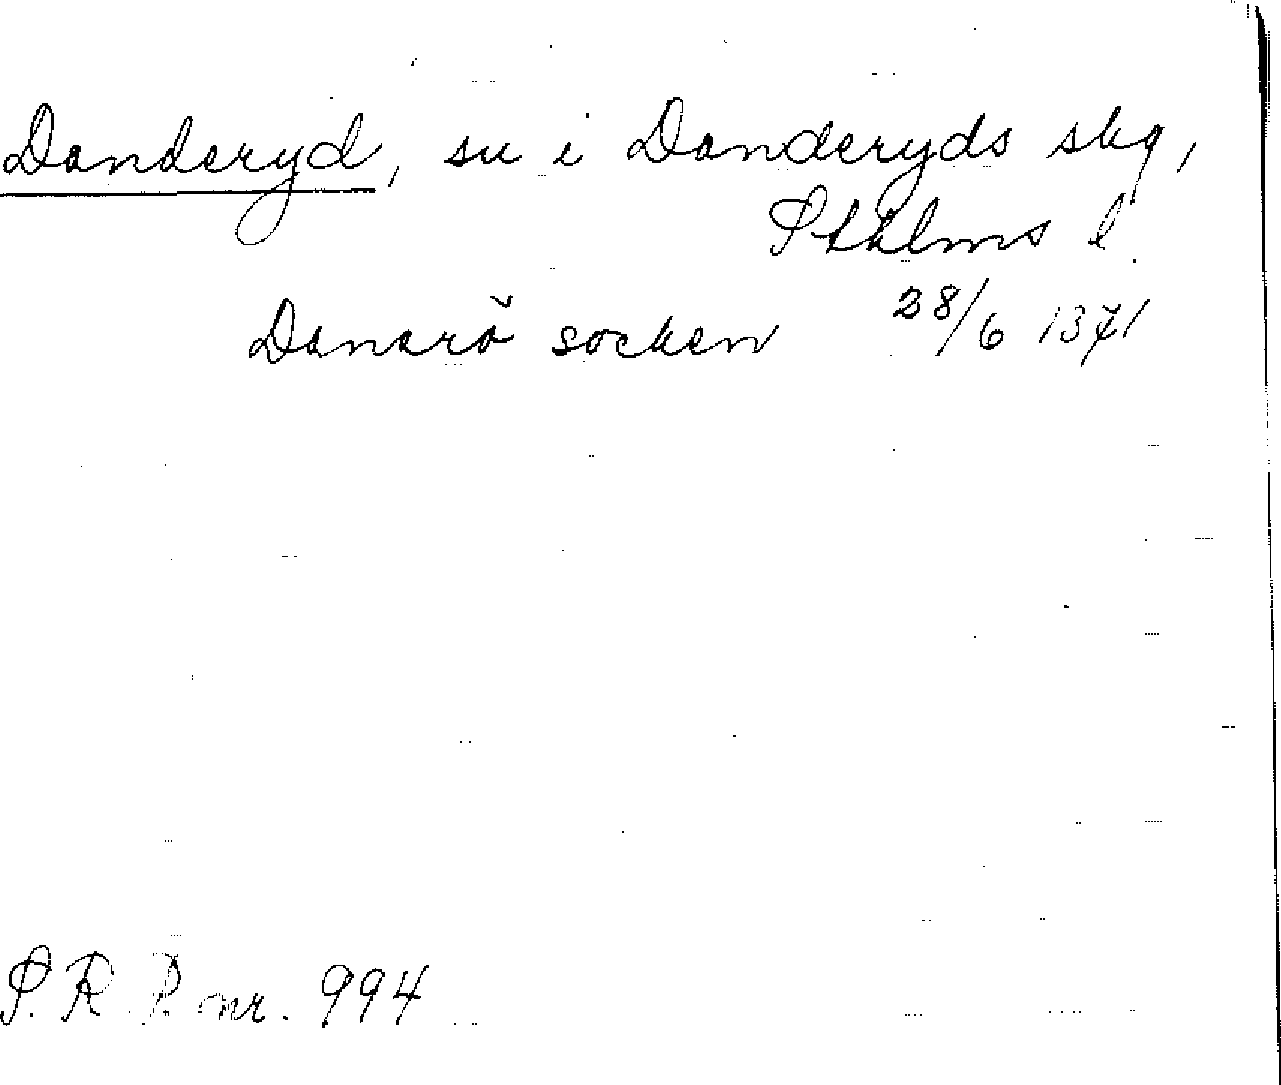 Danderyd, sn i Danderyds skg,
Sthlms l.
Danarö socken 28/6 1371
S.R.P. nr. 994